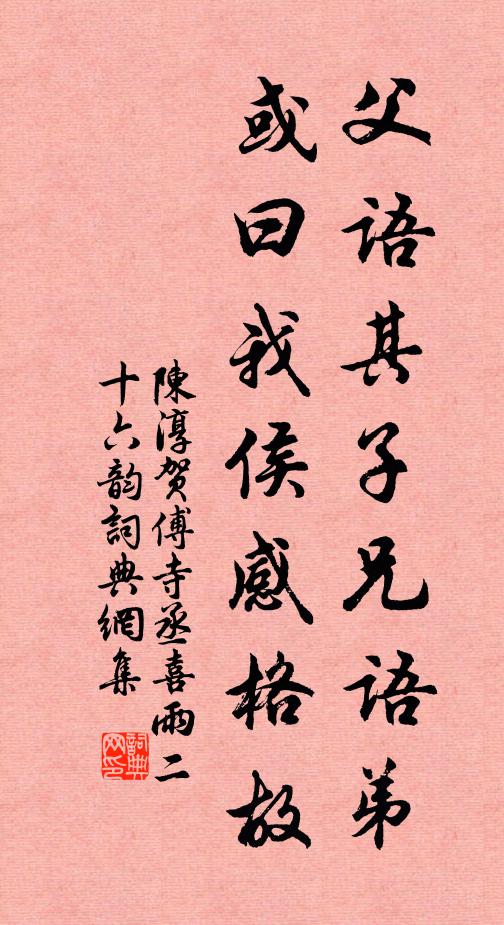 父語其子兄語弟
或曰我侯感格故
陳淳賀傅寺丞喜雨二
十六韵詞典網集
詞典
网印